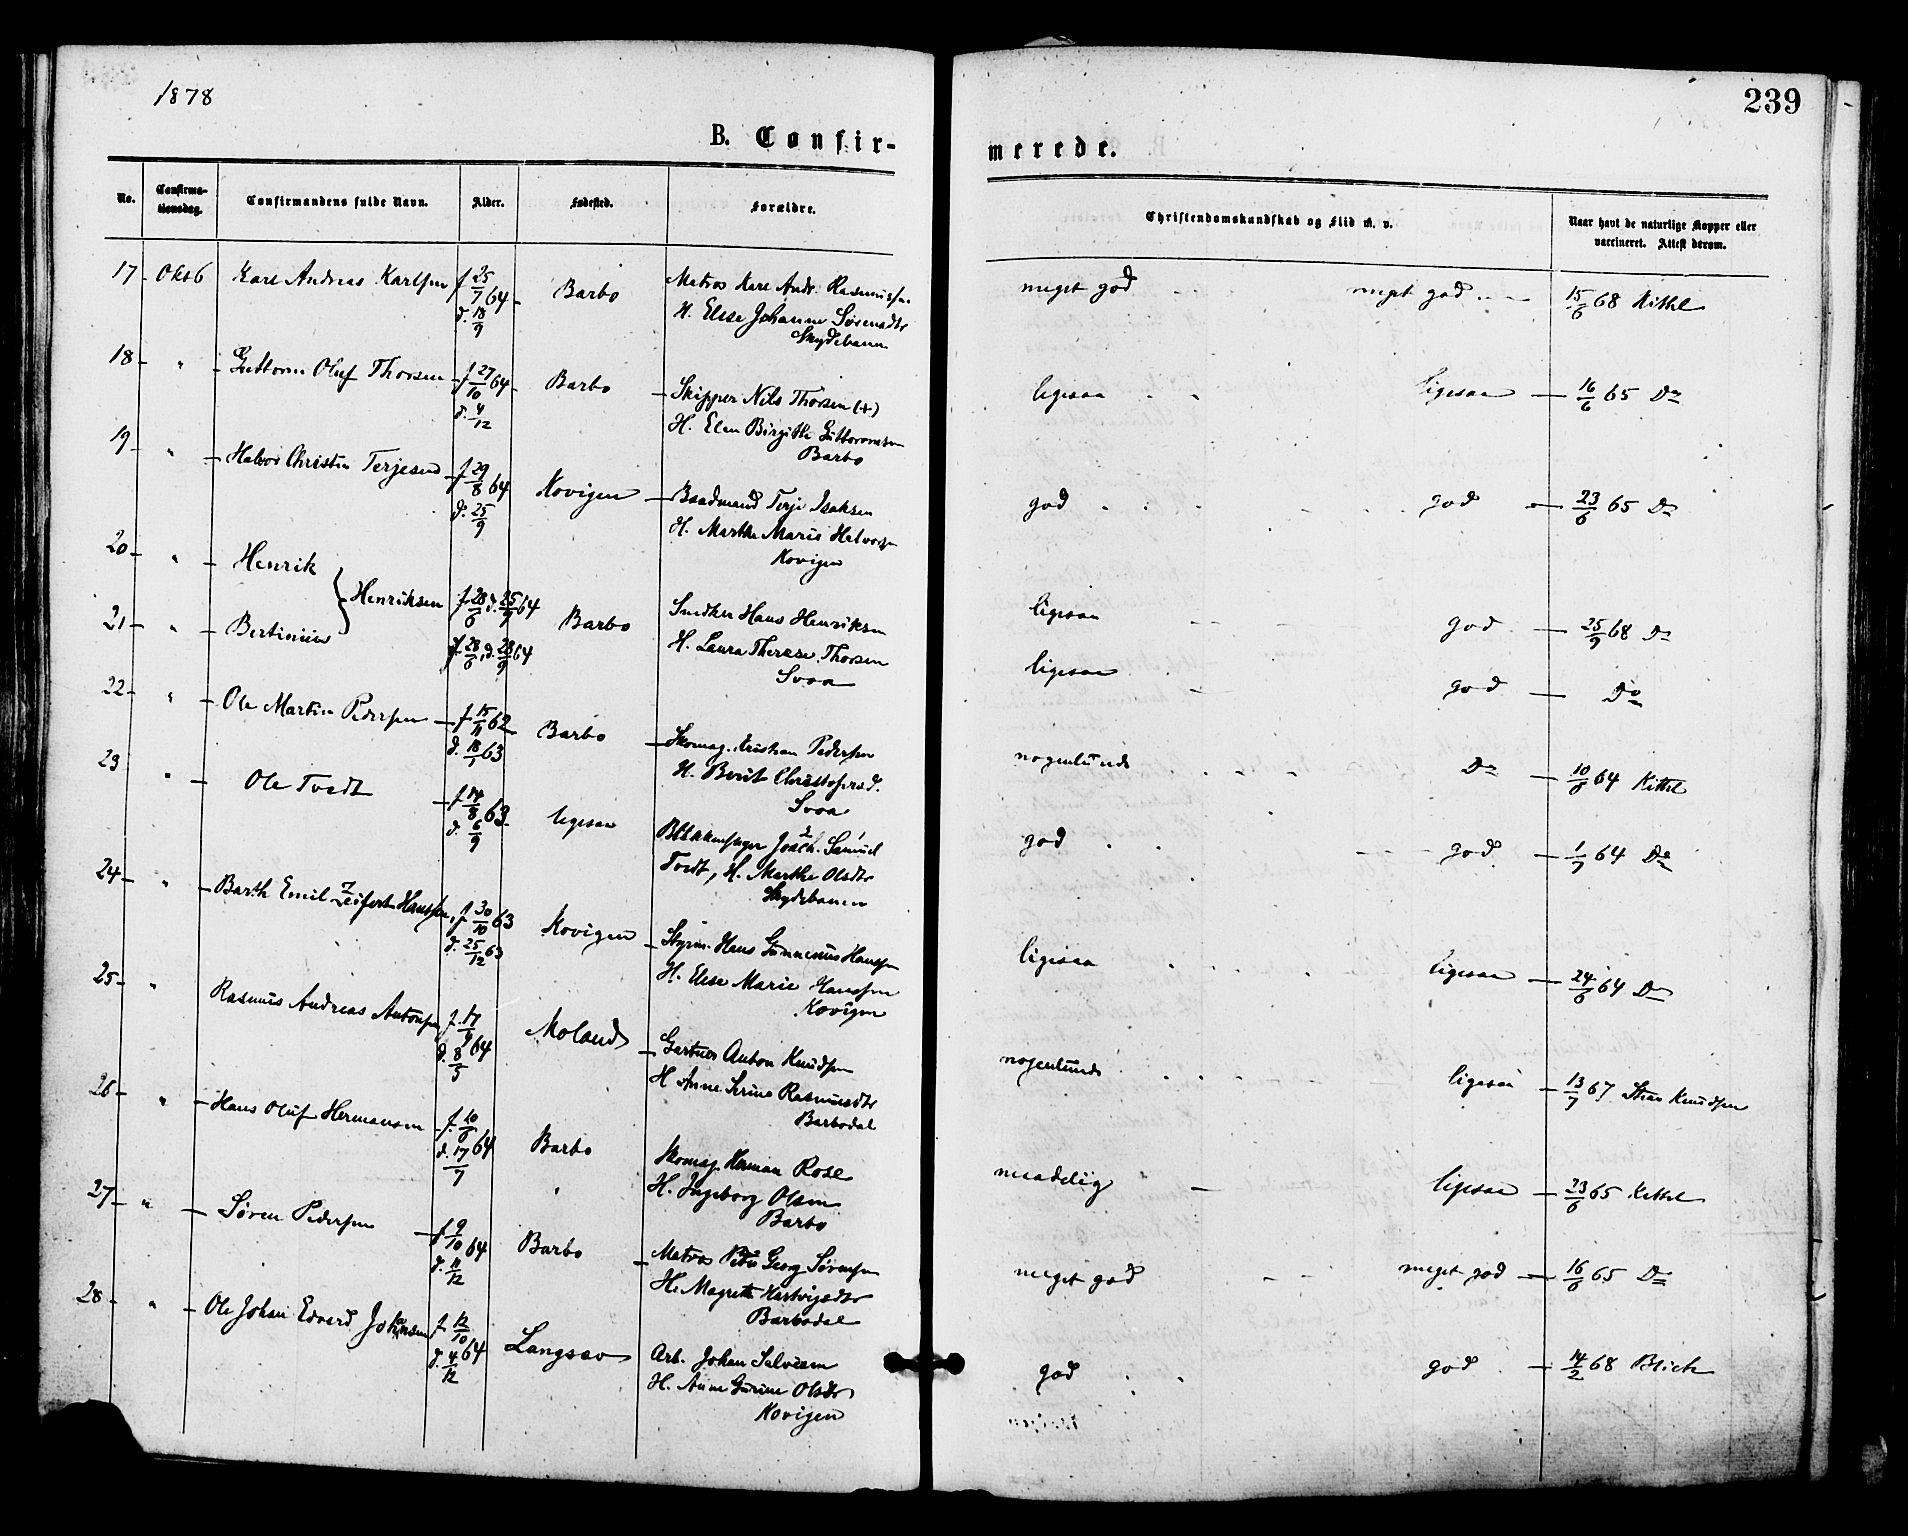 1878
239
B. Confir-
merede.
No.
Confirma-
tionsdag.
Confirmandens fulde Navn.
Alder.
Fødested.
Forældre.
Christendomskundskab og Flid m. v.
Naar havt de naturlige Kopper eller
vaccineret. Attest derom.
17 Okt 6 Karl Andreas Karlsen f 25/7 64 d. 18/9 Barbo
Matros Karl Andr. Rasmussen
H. Elise Johanne Sørensdtr
Skydebanen
meget god meget god 15/6 68 Kittel
18 " Guttorm Oluf Thorsen f 27/10 64 d. 4/12 Barbo
Skipper Nils Thorsen (+)
H. Elen Birgitte Guttormsen
Barbo
ligesaa ligesaa 16/6 65 Do
19 " Halvor Christen Terjesen f 29/8 64 d. 25/9 Kovigen
Baadmand Terje Isaksen
H. Marthe Marie Halvors
Kovigen
god god 23/6 65 Do
20 " Henrik } Henriksen f 28/6 d. 25/9 64 Barbo
21 " Bertinius f. 28/6, d. 28/9 64
Snedker Hans Henriksen
H. Laura Therese Thorsen
Svoa
ligesaa god 25/9 68 Do
ligesaa god Do
22 " Ole Martin Pedersen f 15/11 62 d. 18/1 63 Barbo
Skomag. Kristian Pedersen
H. Berit Christofersd.
Svoa
nogenlunde Do 10/6 64 Kittel
23 " Ole Tvedt f 14/8 63 d. 6/9 ligesaa
Blikkenslager Joach. Samuel
Tvedt, H. Marthe Olsdtr
Skydebanen
god god 1/7 64 Do
24 " Barth Emil Zeifert Hanssen f 30/10 63 d. 25/12 63 Kovigen
Styrm. Hans Gunnenius Hanssen
H. Elise Marie Hanssen
Kovigen
ligesaa ligesaa 24/6 64 Do
25 " Rasmus Andreas Antonsen f. 17/ 64 d. 8/5 Moland
Gartner Anton Knudsen
H Anne Serine Rasmusdtr
Barbodal
nogenlunde ligesaa 13/7 67 Knudsen
26 " Hans Oluf Hermansen f. 10/6 64 d. 17/7 Barbo
Skomag. Herman Rose
H. Ingeborg Olsen
Barbo
maadelig ligesaa 23/6 65 Kittel
27 " Søren Pedersen f 9/10 64 d. 11/12 Barbo
Matros Peder Georg Sørensen
H. Magrethe Hartvigsdtr
Barbodal
meget god meget god 16/6 65 Do
28 " Ole Johan Edvard Johansen f 12/10 64 d. 4/12 Langsæv
Arb. Johan Salvesen
H. Anne Gurine Olsdtr
Kovigen
god god 14/2 68 Blich